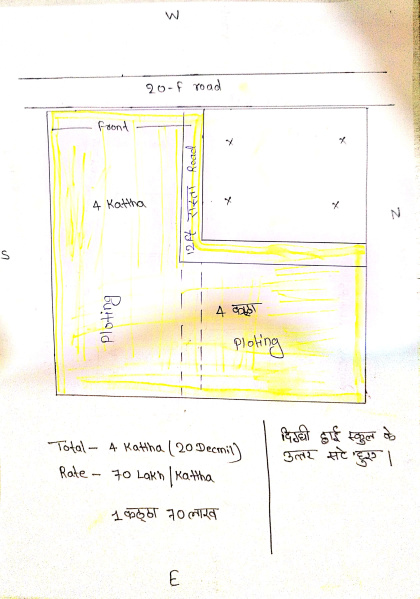 W
20-f road
Frond
12ft रास्ता Road
4 Kattha
N
S
Ploting
4 कट्ठा
Ploting
Total - 4 Kattha (20 Decmil)
Rate - 70 Lakh / Kattha
1 कट्ठा 70 लाख
दिग्घी हाई स्कुल के
उत्तर सटे हुए।
E